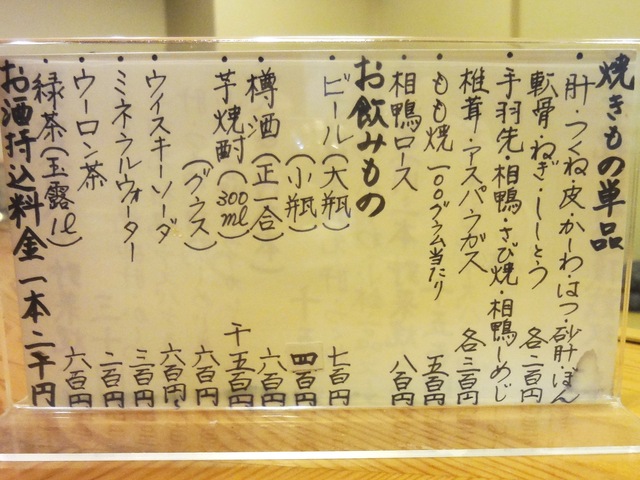 焼きもの単品
・肝・つくね・皮・かーわ・はつ・砂肝・ぼん
軟骨・ねぎ・ししとう 各二百円
・手羽先・相鴨・さび焼・相鴨しめじ
椎茸・アスパラガス 各三百円
・もも焼 一〇〇グラム当たり 五百円
・相鴨ロース 八百円
お飲みもの
・ビール(大瓶) 七百円
(小瓶) 四百円
・樽酒(正一合) 六百円
・芋焼酎(300ml) 千五百円
(グラス) 六百円
・ウイスキーソーダ 六百円
・ミネラルウォーター 三百円
・ウーロン茶 二百円
・緑茶(玉露1l) 六百円
お酒持込料金 一本二千円